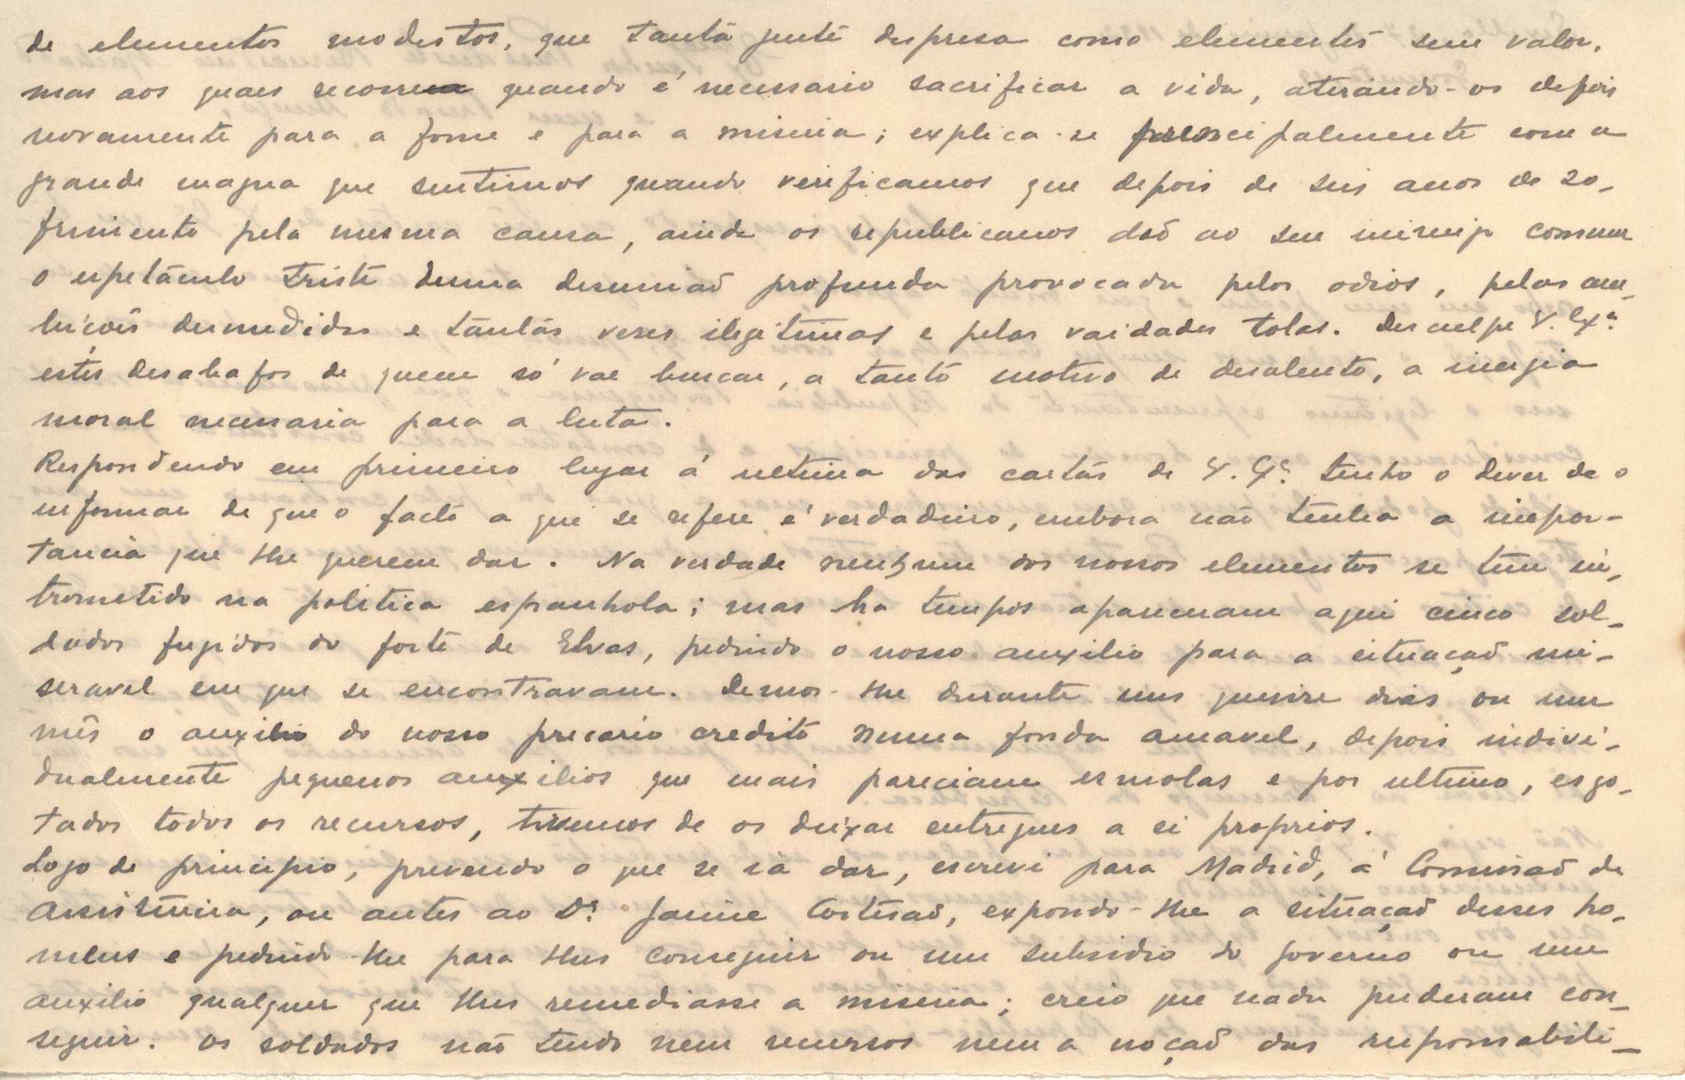 de elementos modestos, que tanta gente despresa como elementos sem valor,
mas aos quaes recorre quando é necessario sacrificar a vida, atirando-os depois
novamente para a fome e para a miseria; explica-se principalmente com a
grande magua que sentimos quando verificamos que depois de seis anos de so-
frimento pela mesma causa, ainda os republicanos dão ao seu inimigo comum
o espetáculo triste duma desunião profunda provocada pelos odios, pelas am-
bições desmedidas e tantas vezes ilegitimas e pelas vaidades tolas. Desculpe V. Exª
estes desabafos de quem só vae buscar, a tanto motivo de desalento, a energia
moral necessaria para a luta.
Respondendo em primeiro lugar á ultima das cartas de V. Exª tenho o dever de o
informar de que o facto a que se refere é verdadeiro, embora não tenha a impor-
tancia que lhe querem dar. Na verdade nenhum dos nossos elementos se tem in-
trometido na politica espanhola; mas ha tempos apareceram aqui cinco sol-
dados fugidos do forte de Elvas, pedindo o nosso auxilio para a situação mi-
seravel em que se encontravam. Demos-lhe durante uns quinze dias ou um
mês o auxilio do nosso precario credito numa fonda amavel, depois indivi-
dualmente pequenos auxilios que mais pareciam esmolas e por ultimo, esgo-
tados todos os recursos, tivemos de os deixar entregues a si proprios.
Logo de principio, prevendo o que se ia dar, escrevi para Madrid, á Comissão de
Assistencia, ou antes ao Dr. Jaime Cortesão, expondo-lhe a situação desses ho-
mens e pedindo-lhe para lhes conseguir ou um subsidio do governo ou um
auxilio qualquer que lhes remediasse a miseria; creio que nada puderam con-
seguir. Os soldados não tendo nem recursos nem a noção das responsabili-